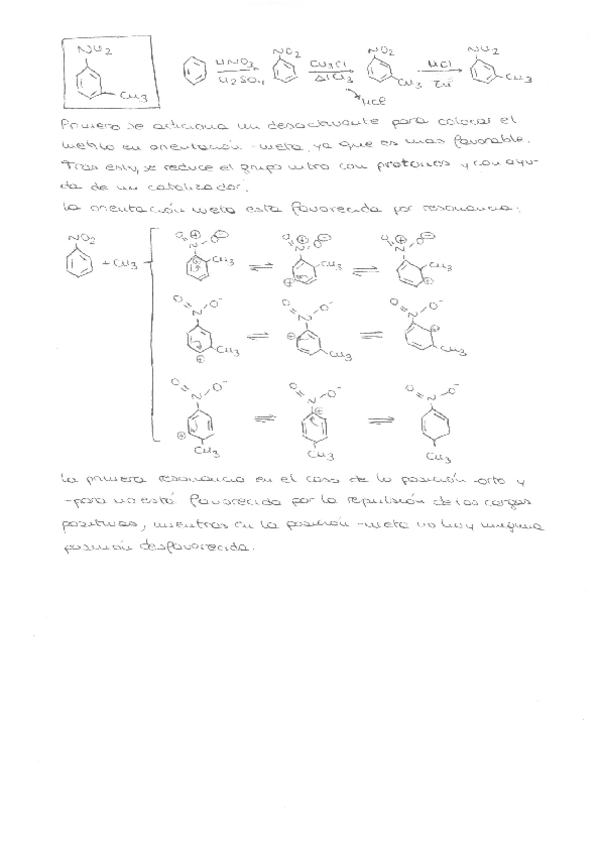 NO2
CH3
HNO3
H2SO4
NO2
CH3Cl
AlCl3
HCl
NO2
CH3
HCl
Zn
NH2
CH3
Primero se adiciona un desactivante para colocar el
metilo en orientación -meta, ya que es mas favorable.
Tras esto, se reduce el grupo nitro con protones y con ayu-
da de un catalizador.
La orientación meta esta favorecida por resonancia:
NO2
+ CH3
O N O
CH3
O N O
CH3
O N O
CH3
O N O-
CH3
O N O-
CH3
O N O-
CH3
O N O-
CH3
O N O-
CH3
O N O-
CH3
La primera resonancia en el caso de la posición -orto y
-para no está favorecida por la repulsión de las cargas
positivas, mientras en la posición -meta no hay ninguna
posición desfavorecida.